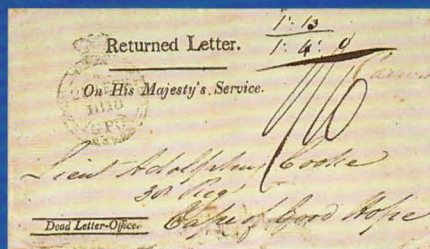 1: 13
Returned Letter.
1: 4: 0
On His Majesty's Service.
1818
GPO
Lieut Adolphus Cooke
38 Regt
Dead Letter-Office.
Cape of Good Hope